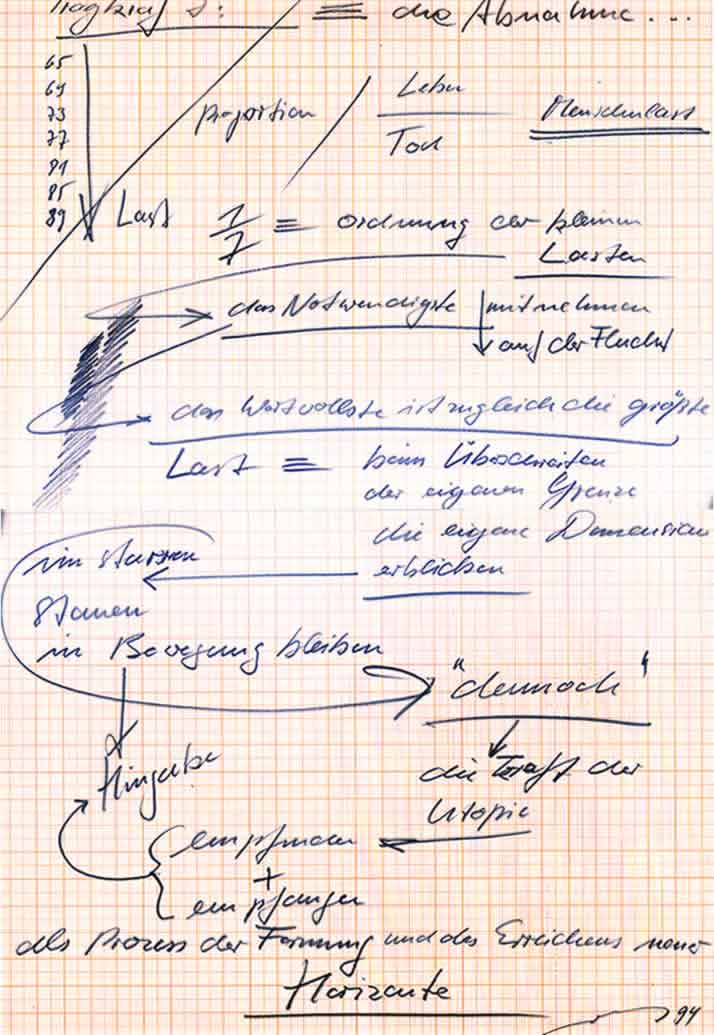 Tragkraft ≡ die Abnahme...
65
69
73
77
81
85
89
Last
Proportion
Leben
Tod
Menschenlast
1/7 ≡ Ordnung der kleinen
Lasten
das Notwendigste
mitnehmen
auf der Flucht
das Wertvollste ist zugleich die größte
Last ≡ beim Überschreiten
der eigenen Grenze
die eigene Dimension
erblicken
im starren
Staunen
in Bewegung bleiben
"dennoch"
die Kraft der
Utopie
Hingabe
empfinden
+
empfangen
als Prozess der Formung und des Erreichens neuer
Horizonte
94